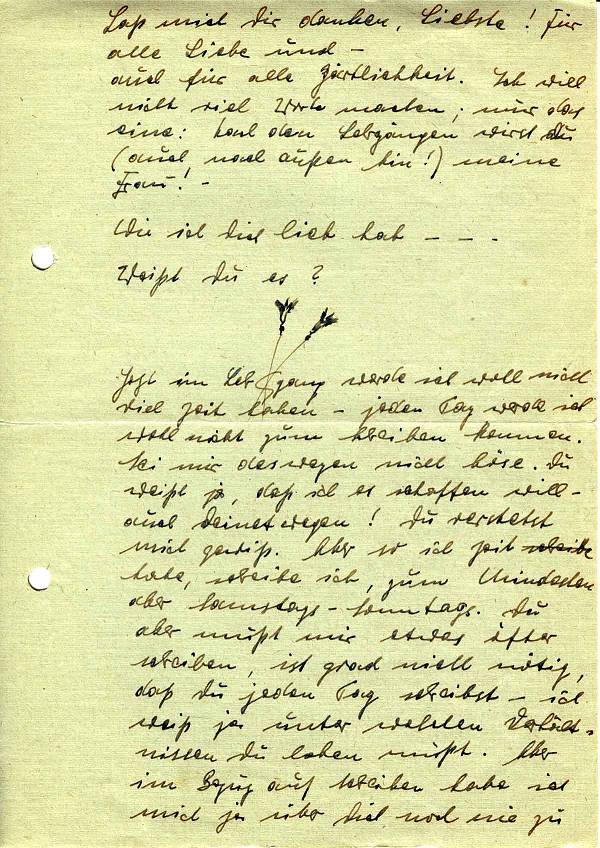 Laß mich dir danken, Liebste! Für
alle Liebe und –
auch für alle Zärtlichkeit. Ich will
nicht viel Worte machen; nur das
eine: nach den Lehrgängen wirst du
(auch nach außen hin!) meine
Frau! –
Wie ich dich lieb hab – – –
Weißt du es?
Jetzt im Lehrgang werde ich wohl nicht
viel Zeit haben – jeden Tag werde ich
wohl nicht zum Schreiben kommen.
Sei mir deswegen nicht böse. Du
weißt ja, daß ich es schaffen will –
auch deinetwegen! Du verstehst
mich gewiß. Aber so ich Zeit schreibe
habe, schreibe ich, zum Mindesten
aber Samstags – Sonntags. Du
aber mußt mir etwas öfter
schreiben, ist grad nicht nötig,
daß du jeden Tag schreibst – ich
weiß ja unter welchen Verhält-
nissen du leben mußt. Aber
im Bezug auf Schreiben habe ich
mich ja über dich noch nie zu